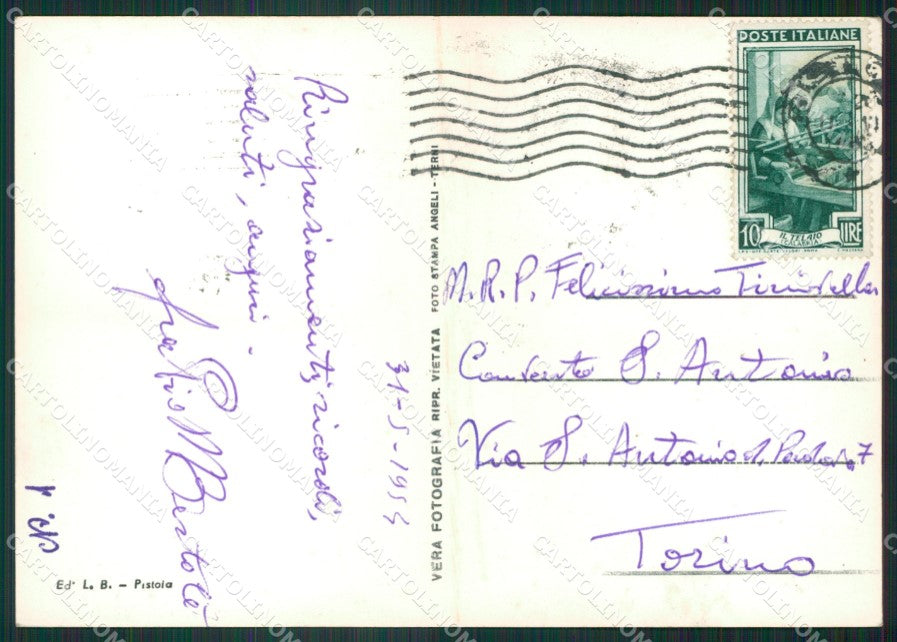 Ringraziamenti, ricordi,
saluti, auguri.
fra Pio M. Bertole
31-5-1954
VERA FOTOGRAFIA RIPR. VIETATA FOTO STAMPA ANGELI - TERNI
Ed. L. B. - Pistoia
POSTE ITALIANE
10 LIRE
IL TELAIO
CALABRIA
M. R. P. Felicissimo Tinivella
Convento S. Antonio
Via S. Antonio d. Padova 7
Torino
CARTOLINOMANIA